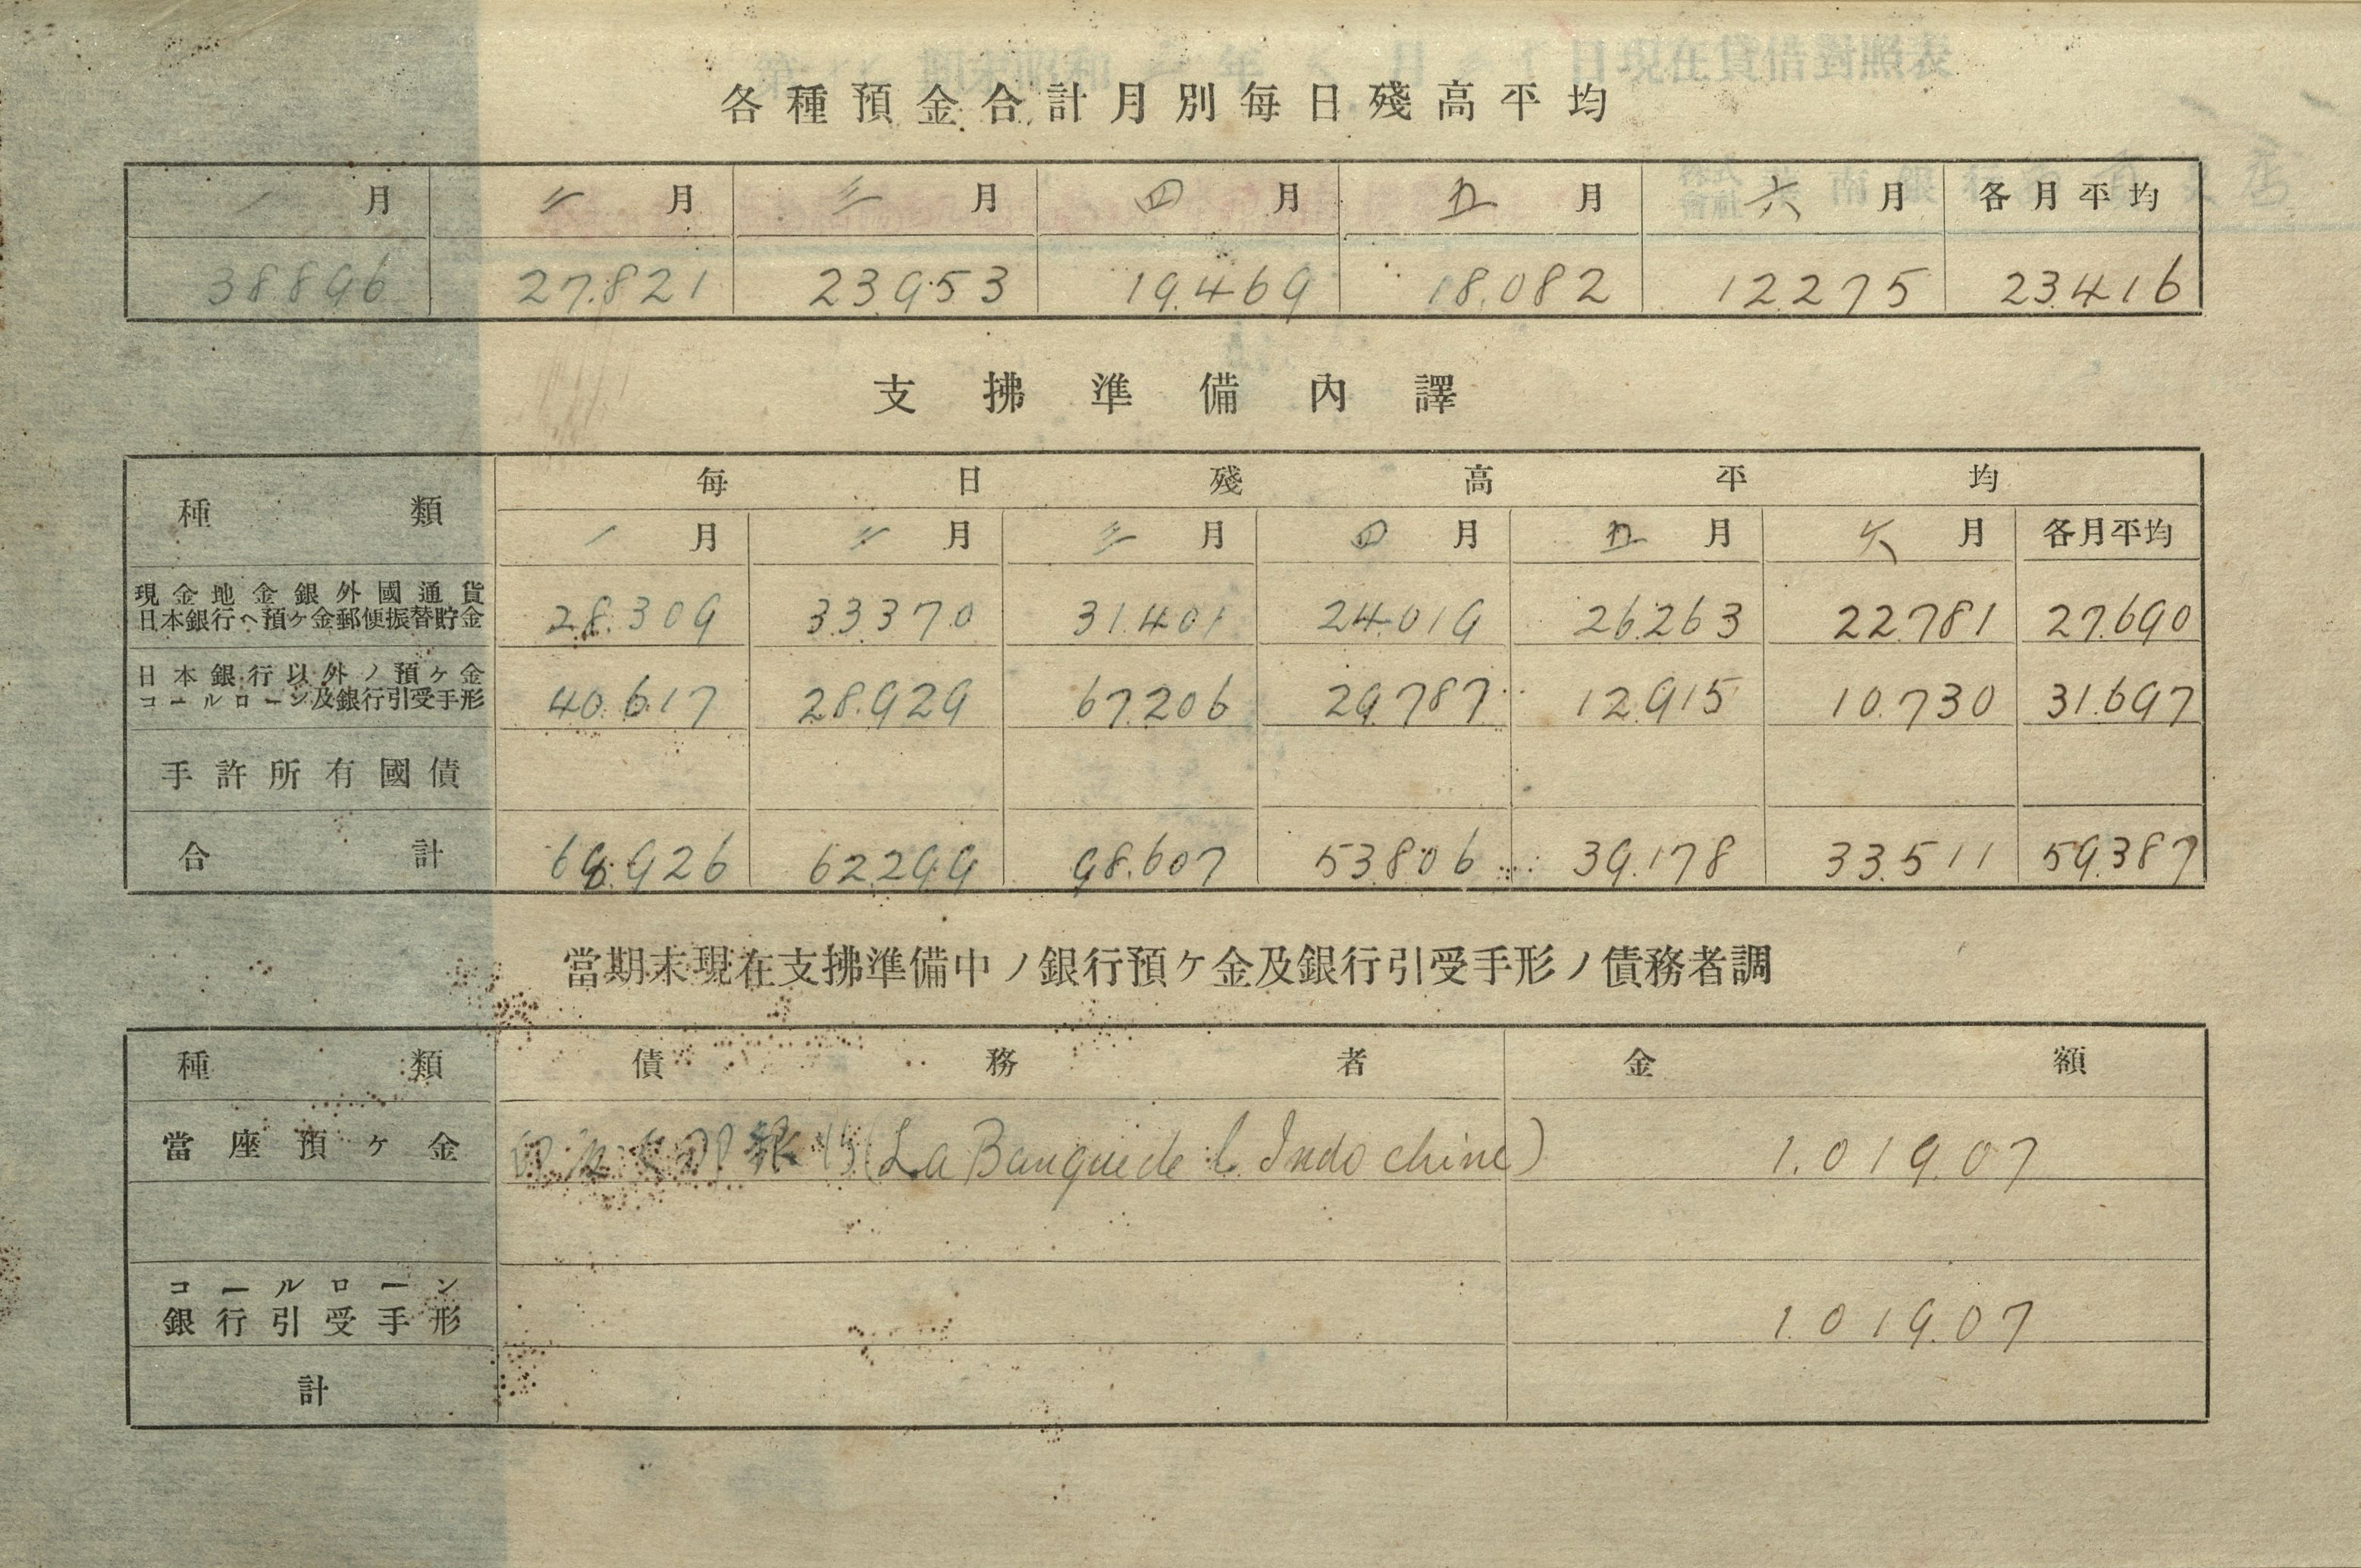 各種預金合計月別每日殘高平均
一月 二月 三月 四月 五月 六月 各月平均
38896 27.821 23.953 19.469 18.082 12.275 23.416
支拂準備內譯
種類 每日殘高平均
一月 二月 三月 四月 五月 六月 各月平均
現金地金銀外國通貨
日本銀行ヘ預ケ金郵便振替貯金 28.309 33.370 31.401 24.019 26.263 22.781 27.690
日本銀行以外ノ預ケ金
コールローン及銀行引受手形 40.617 28.929 67.206 29.787 12.915 10.730 31.697
手許所有國債
合計 68.926 62.299 98.607 53.806 39.178 33.511 59.387
當期末現在支拂準備中ノ銀行預ケ金及銀行引受手形ノ債務者調
種類 債務者 金額
當座預ケ金 銀行(La Banque de l Indo chine) 1.019.07
コールローン
銀行引受手形 1.019.07
計